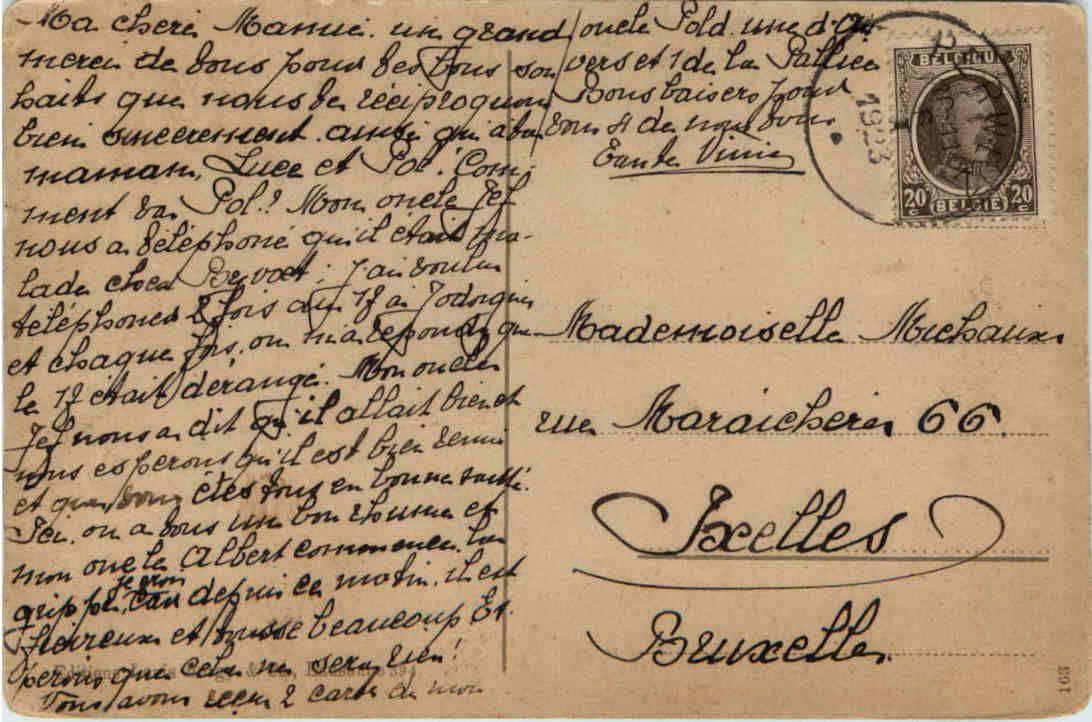 Ma cheri Mamie. un grand
merci de vous pour tes bons sou
haits que nous te réciproquons
bien sincèrement ainsi qu'à ta
maman, Luce et Pol. Com
ment va Pol? Mon oncle Jef
nous a téléphoné qu'il était ma-
lade chez J'ai voulu
téléphoner 2 fois au 17 à Jodoigne
et chaque fois on m'a répondu que
le 17 était dérangé. Mon oncle
Jef nous a dit qu'il allait bien et
nous esperons qu'il est bien remis
et que vous êtes tous en bonne santé.
Ici, on a tous un bon rhume et
mon oncle Albert commence la
grippe, je crois car depuis ce matin, il est
fiévreux et tousse beaucoup Es-
pérons que cela ne sera rien!
Nous avons reçu 2 cartes de mon
oncle Pold une d'An
vers et 1 de la
Bons baisers pour
vous 4 de nous tous
Tante
BELGIQUE
20 c 20 c
BELGIË
1923
Mademoiselle Michaux
rue Maraichers 66.
Ixelles
Bruxelles.
163